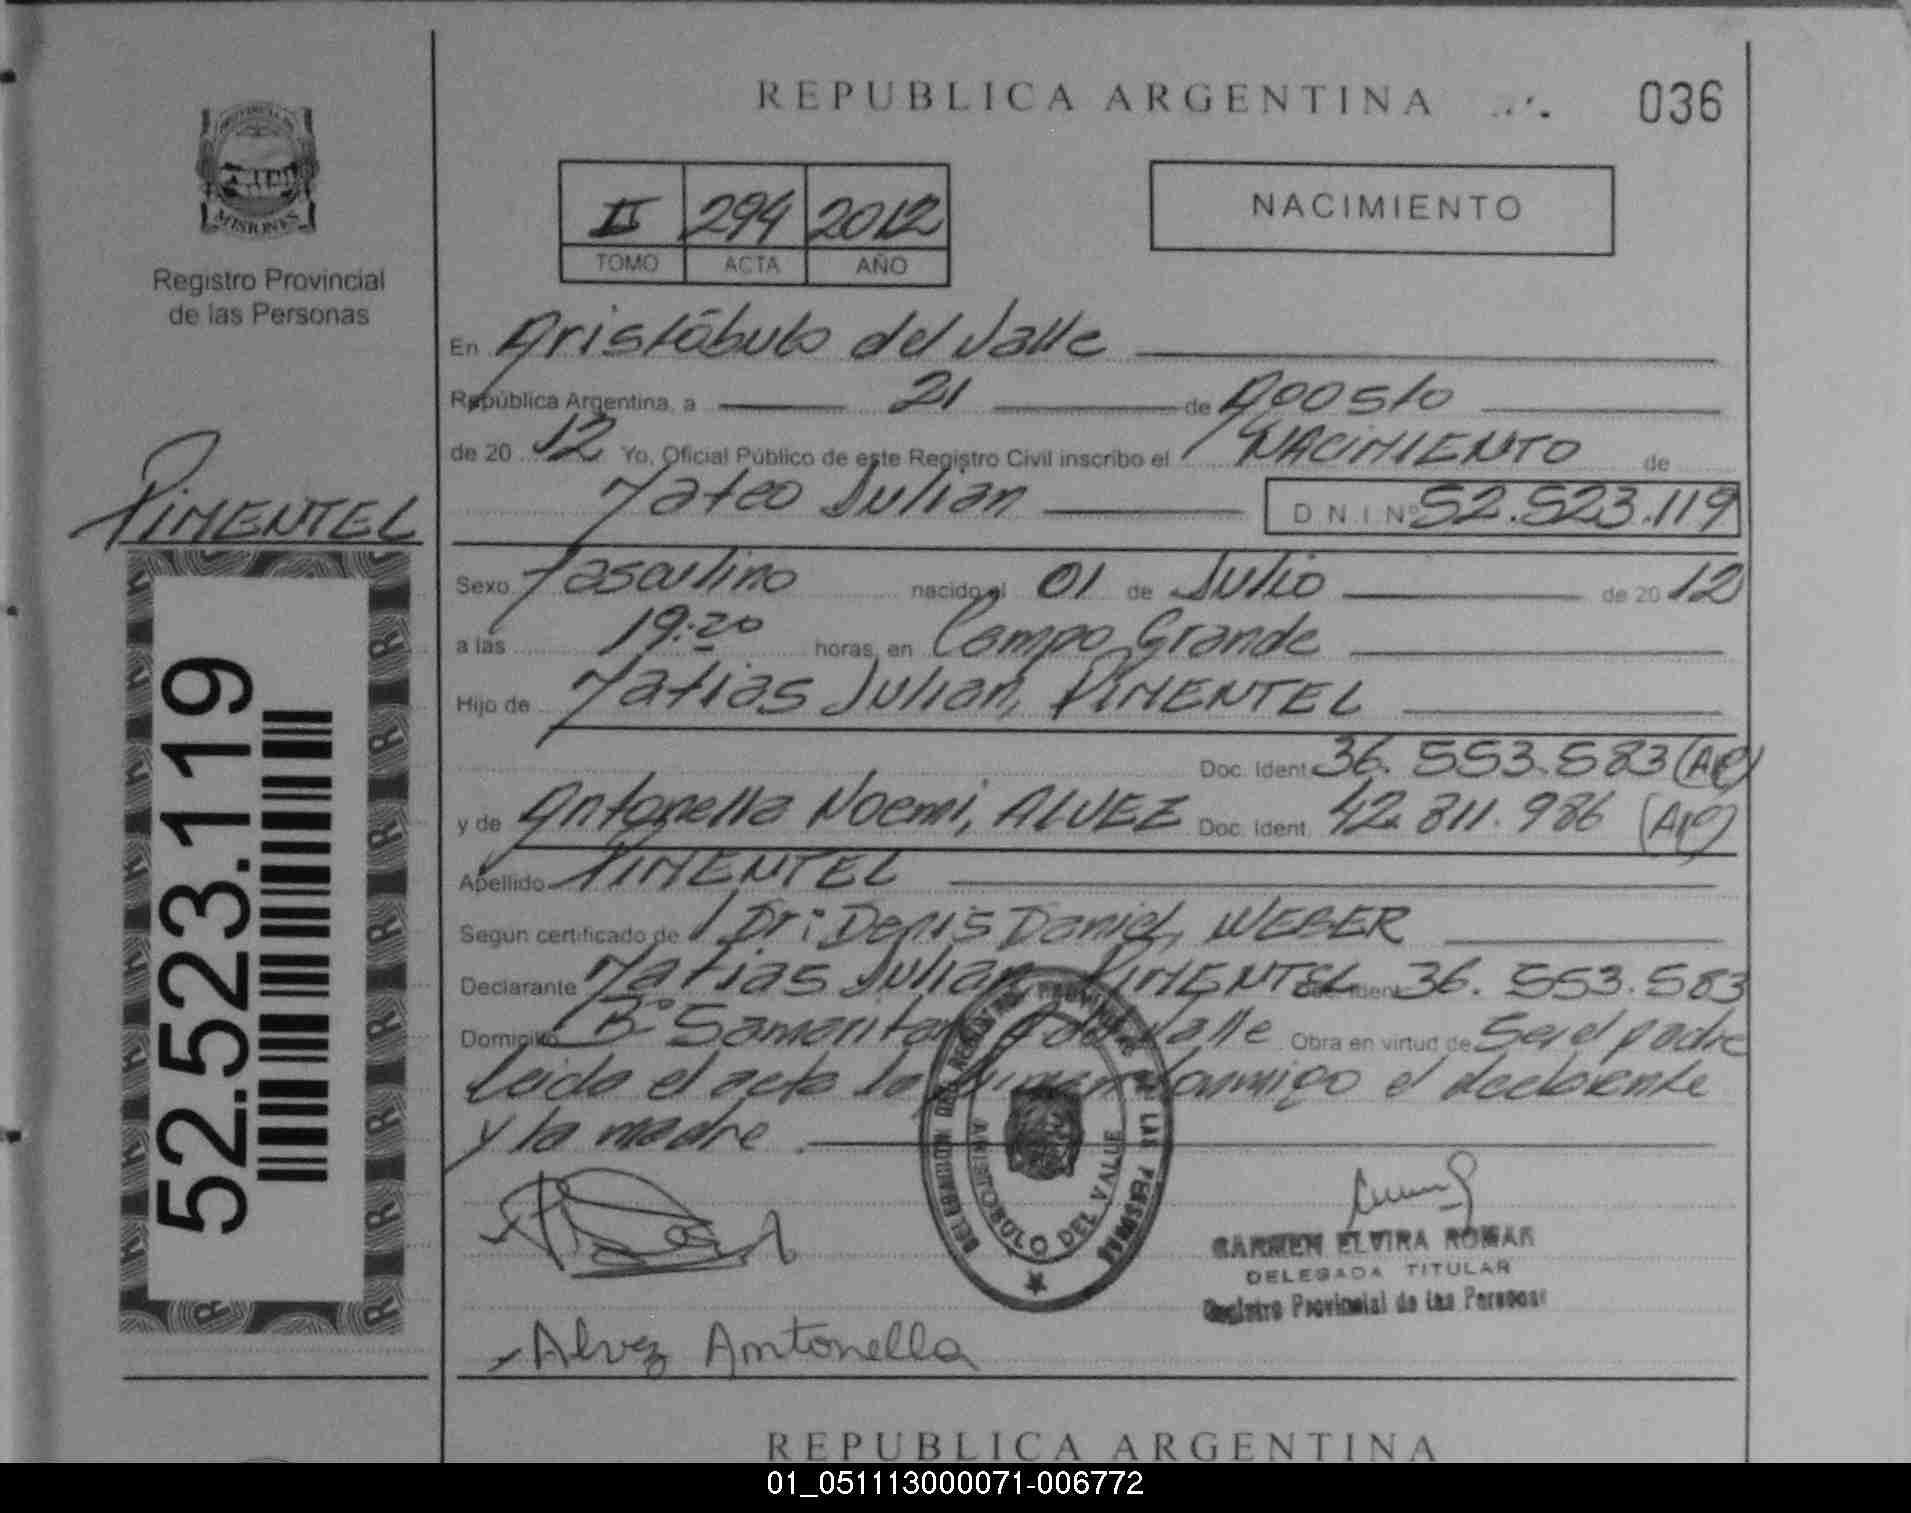 REPUBLICA ARGENTINA
036
PROVINCIA DE
MISIONES
Registro Provincial
de las Personas
II 294 2012
TOMO ACTA AÑO
NACIMIENTO
En Aristóbulo del Valle
República Argentina, a 21 de Agosto
de 20 12 Yo, Oficial Público de este Registro Civil inscribo el NACIMIENTO de
Mateo Julian D N I Nº 52.523.119
PIMENTEL
Sexo Masculino nacido el 01 de Julio de 20 12
a las 19:20 horas, en Campo Grande
Hijo de Matias Julian, PIMENTEL
Doc. Ident. 36.553.583 (AR)
y de Antonella Noemi, ALVEZ Doc. Ident. 42.811.986 (AR)
Apellido PIMENTEL
Según certificado de Dr: Denis Daniel, WEBER
Declarante Matias Julian PIMENTEL Doc. Ident. 36.553.583
Domicilio Bº Samaritano A. del Valle Obra en virtud de Ser el padre
Leida el acta la firman conmigo el declarante
y la madre
52.523.119
DELEGACION DEL REGISTRO PROVINCIAL DE LAS PERSONAS
ARISTOBULO DEL VALLE
CARMEN ELVIRA ROMAN
DELEGADA TITULAR
Registro Provincial de las Personas
Alvez Antonella
REPUBLICA ARGENTINA
01_051113000071-006772